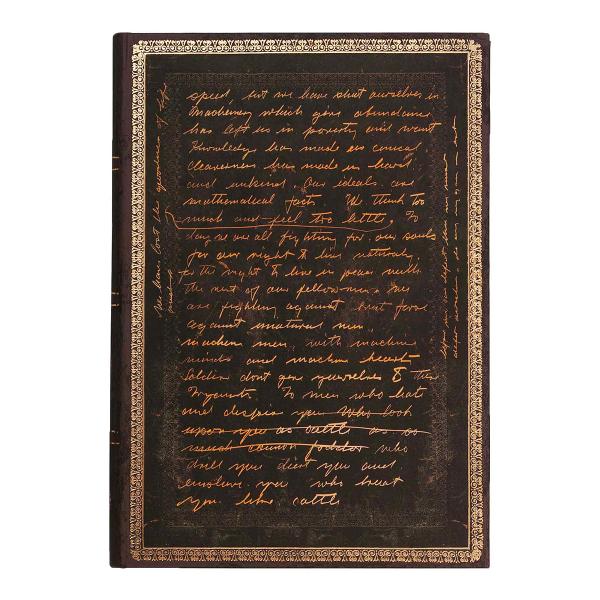 speed but we have shut ourselves in
Machinery which give abundance
has left us in poverty and want
Knowledge has made us cynical
Cleaverness has made us hard
and unkind. Our ideals are
mathamatical facts. We think too
much and feel too little. To
day we are all fighting for our souls
for our right to live naturaly.
for the right to live in peace with
the rest of our fellow men. We
are fighting against brut force
against unatural men
machien men, with machine
minds and machine hearts
Soldiers dont give yourselves to these
Tryrants. To men who hate
and despise you Who look
upon you as cattle as so
much cannon fodder who
drill you diet you and
enslave you who treat
you like cattle
We have lost the